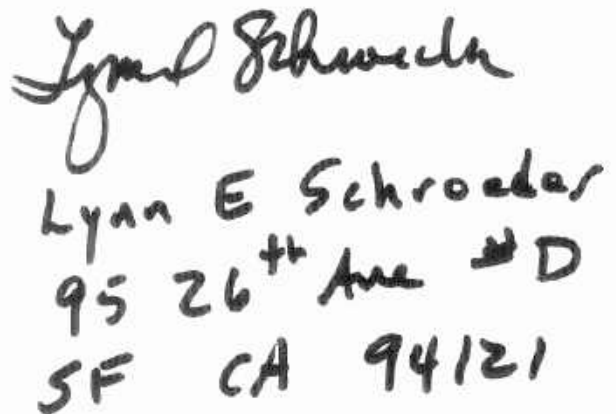 Lynn E Schroeder
Lynn E Schroeder
95 26th Ave #D
SF CA 94121